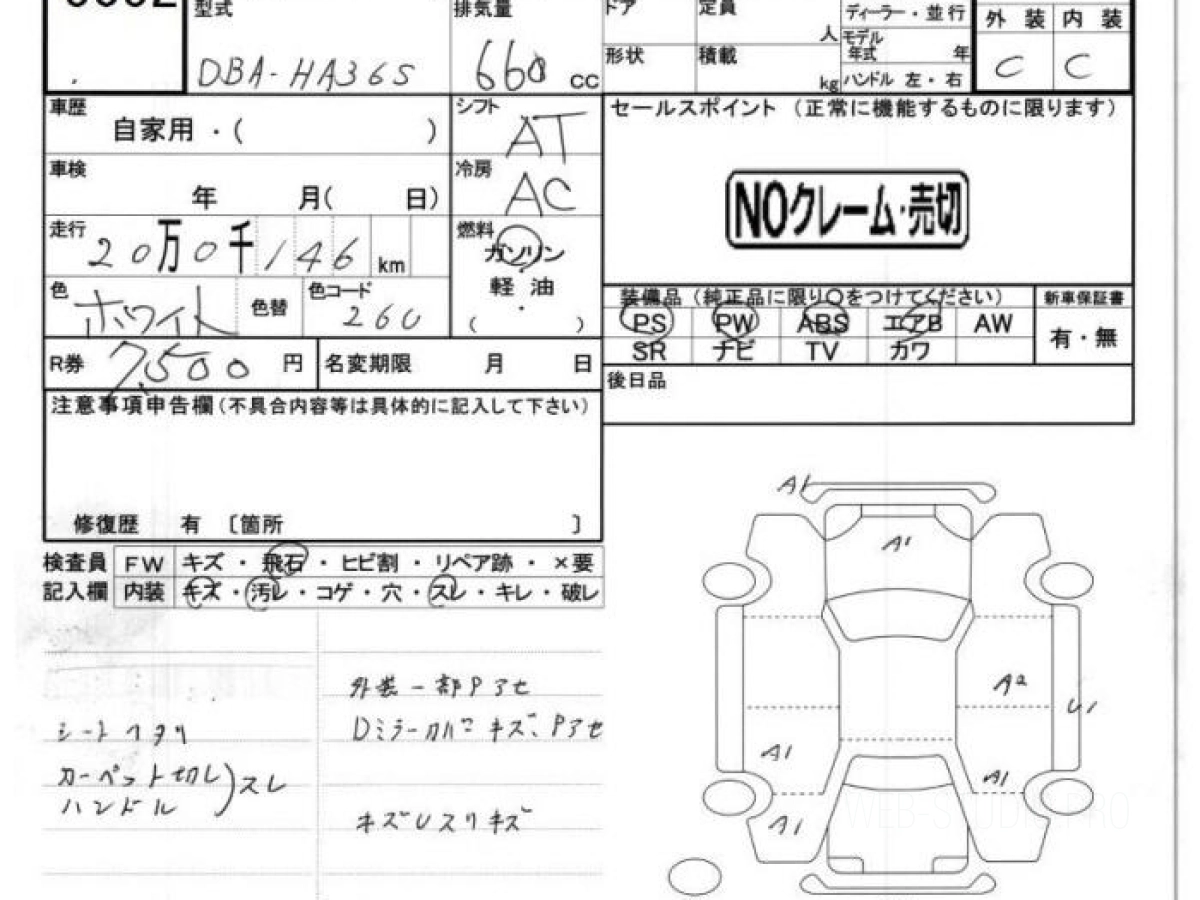 型式 排気量 ドア 定員 人 ディーラー・並行 外装 内装
DBA-HA36S 660 cc 形状 積載 kg モデル年式 年 C C
ハンドル 左・右
車歴 自家用・( )
シフト AT
セールスポイント (正常に機能するものに限ります)
車検 年 月( 日)
冷房 AC
NOクレーム・売切
走行 20万0千146 km
燃料 ガソリン
軽油
( ・ )
色 ホワイト 色替 色コード 260
装備品 (純正品に限り○をつけてください) 新車保証書
PS PW ABS エアB AW 有・無
SR ナビ TV カワ
R券 7,500 円 名変期限 月 日
後日品
注意事項申告欄(不具合内容等は具体的に記入して下さい)
修復歴 有 〔箇所 〕
検査員 FW キズ・飛石・ヒビ割・リペア跡・×要
記入欄 内装 キズ・汚レ・コゲ・穴・スレ・キレ・破レ
外装一部Pアセ
シートヘタリ
Dミラーカバーキズ、Pアセ
カーペット切レ
ハンドル
スレ
キズUスリキズ
A1
A1
A2
U1
A1
A1
A1
WEB-STUDIEPRO